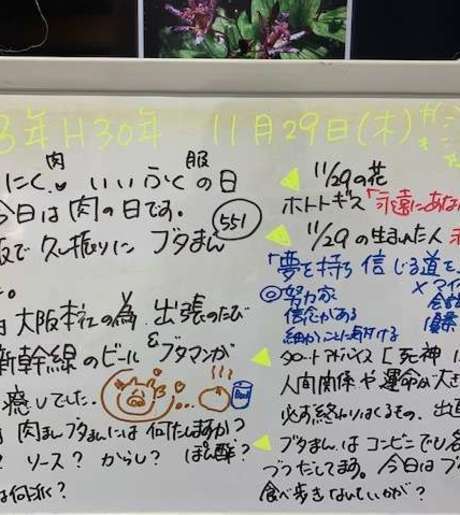 3年 H30年 11月29日(木)
肉 服
にく♥ いいふくの日
今日は肉の日です。
551
阪で久し振りにブタまん
。
大阪本社の為、出張のたび
新幹線のビール&ブタマンが
癒しでした。
Beer
肉まんブタまんには何たしますか?
? ソース? からし? ぽん酢?
は何派?
11/29の花
ホトトギス「永遠にあな
11/29の生まれた人
「夢を持ち信じる道を
◎努力家
信念がある
細かいことに気付ける
×マイ
タロートアドバイス[死神
人間関係や運命が大き
必ず終わりはくるもの、出
ブタまんはコンビニでも各
づつだしてます。今日はブ
食べ歩きなんていかが?